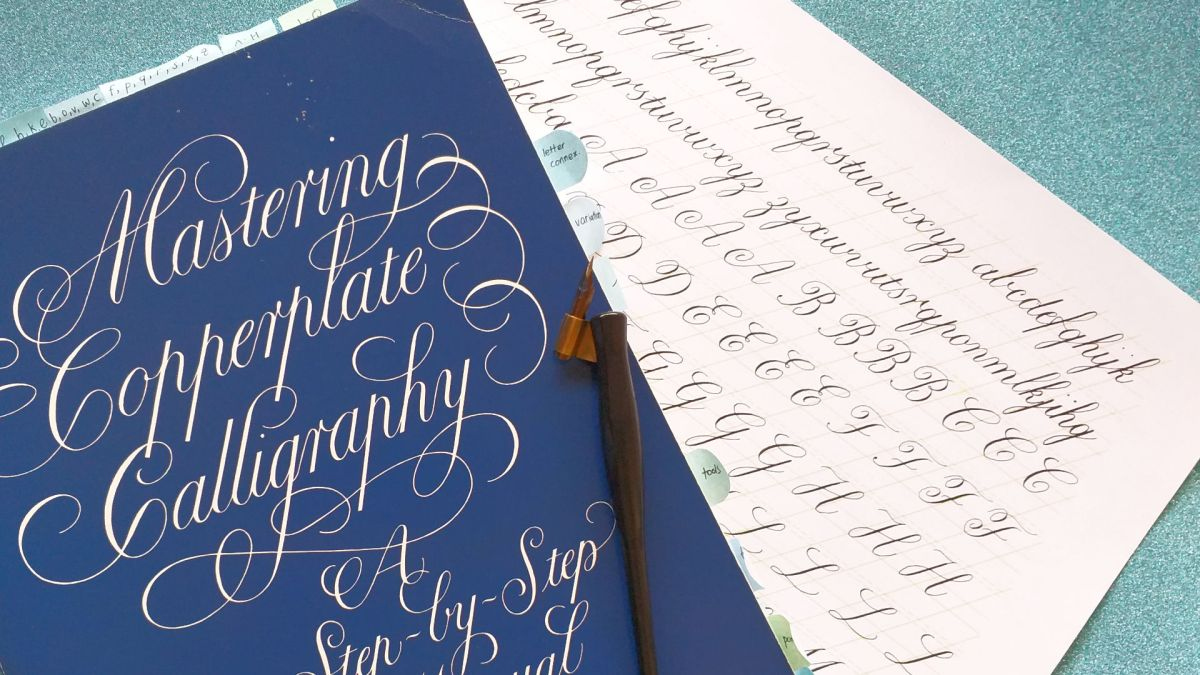 h, k, e b, o, v, w, c f, p, q, r, s, x, z A-H I-Q
Mastering
Copperplate
Calligraphy
A
Step-by-Step
letter
connex.
variation
tools
defghijklmnopqrstuvwxyz abcdefghijk
lmnopqrstuvwxyz zyxwvutsrqponmlkjihg
edcba A A A A B B B B C C C
D D E E E E F F F F
G G G G H H H
L L L L